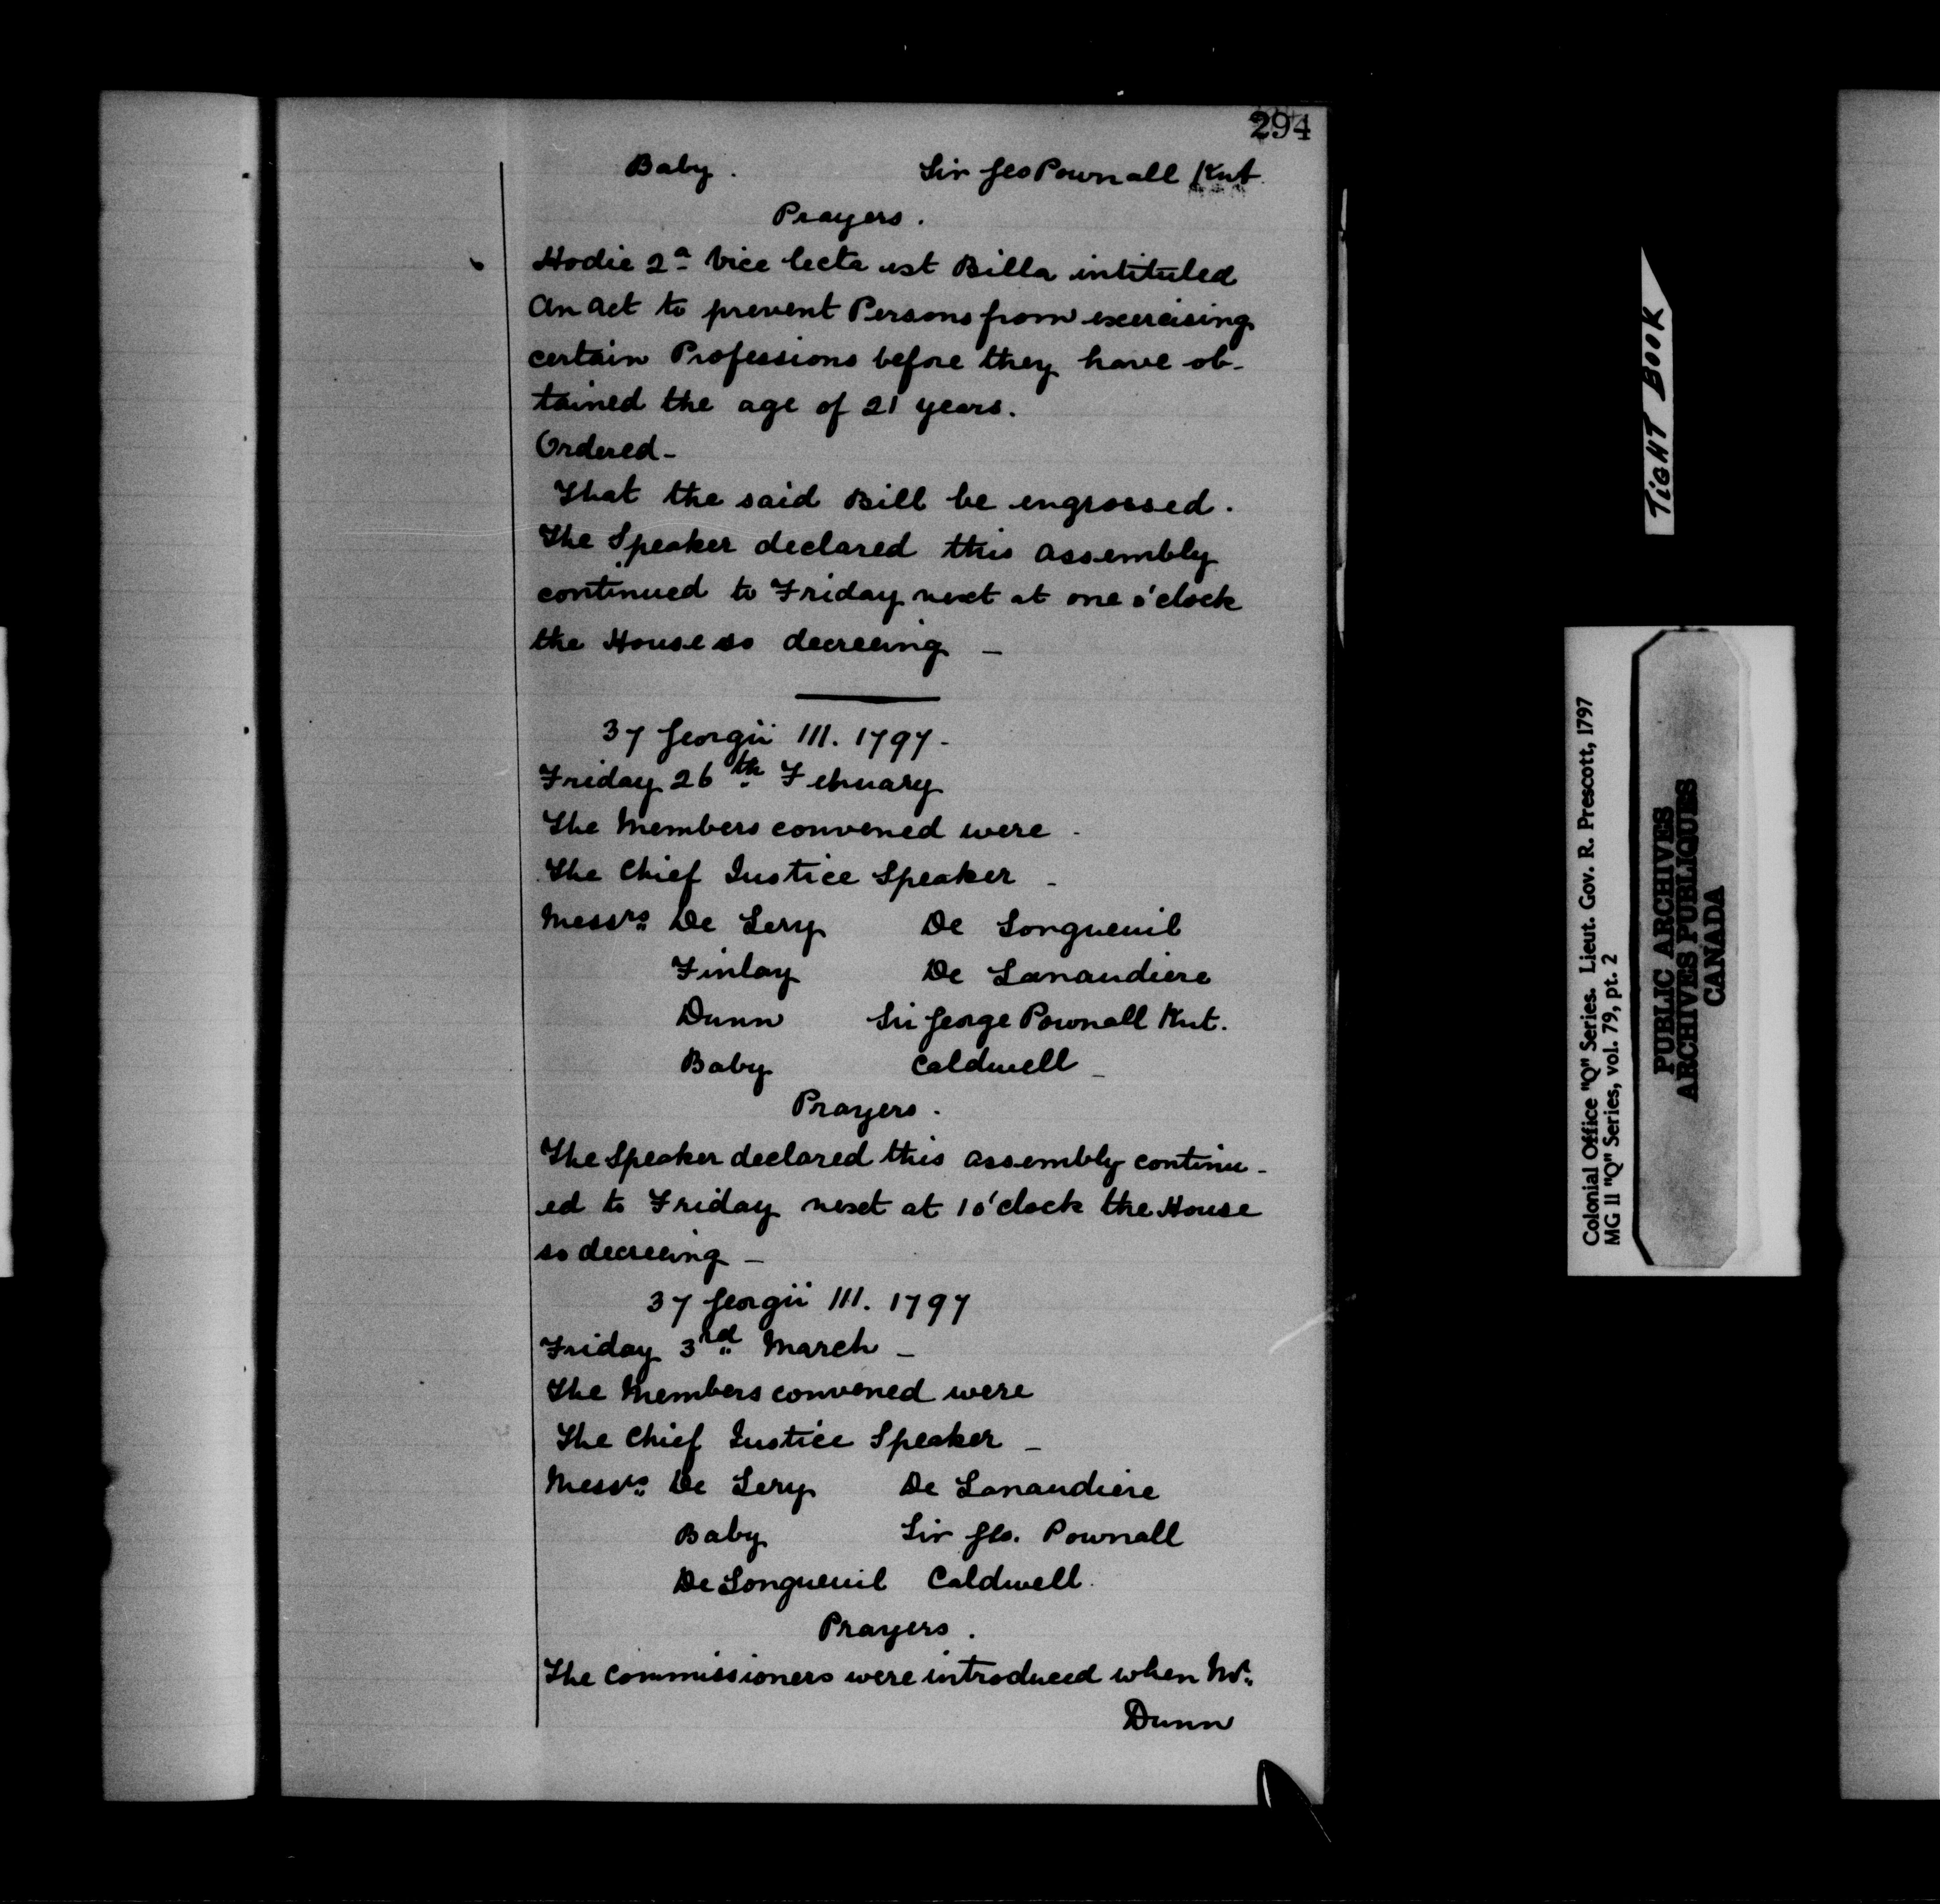 294
Baby. Sir Geo Pownall Knt.
Prayers.
Hodie 2a vice lecta est Billa intituled
An Act to prevent Persons from exercising
certain Professions before they have ob-
tained the age of 21 years.
Ordered-
That the said Bill be engrossed.
The Speaker declared this Assembly
continued to Friday next at one o'clock
the House so decreeing -
37 Georgii III. 1797-
Friday 26th February
The Members convened were -
The Chief Justice Speaker -
Messrs De Lery De Longueuil
Finlay De Lanaudiere
Dunn Sir George Pownall Knt.
Baby Caldwell -
Prayers.
The Speaker declared this Assembly continu-
ed to Friday next at 1 o'clock the House
so decreeing -
37 Georgii III. 1797
Friday 3rd March -
The Members convened were
The Chief Justice Speaker -
Messrs De Lery De Lanaudiere
Baby Sir Geo. Pownall
De Longueuil Caldwell.
Prayers.
The Commissioners were introduced when Mr.
Dunn
TIGHT BOOK
Colonial Office "Q" Series. Lieut. Gov. R. Prescott, 1797
MG 11 "Q" Series, vol. 79, pt. 2
PUBLIC ARCHIVES
ARCHIVES PUBLIQUES
CANADA